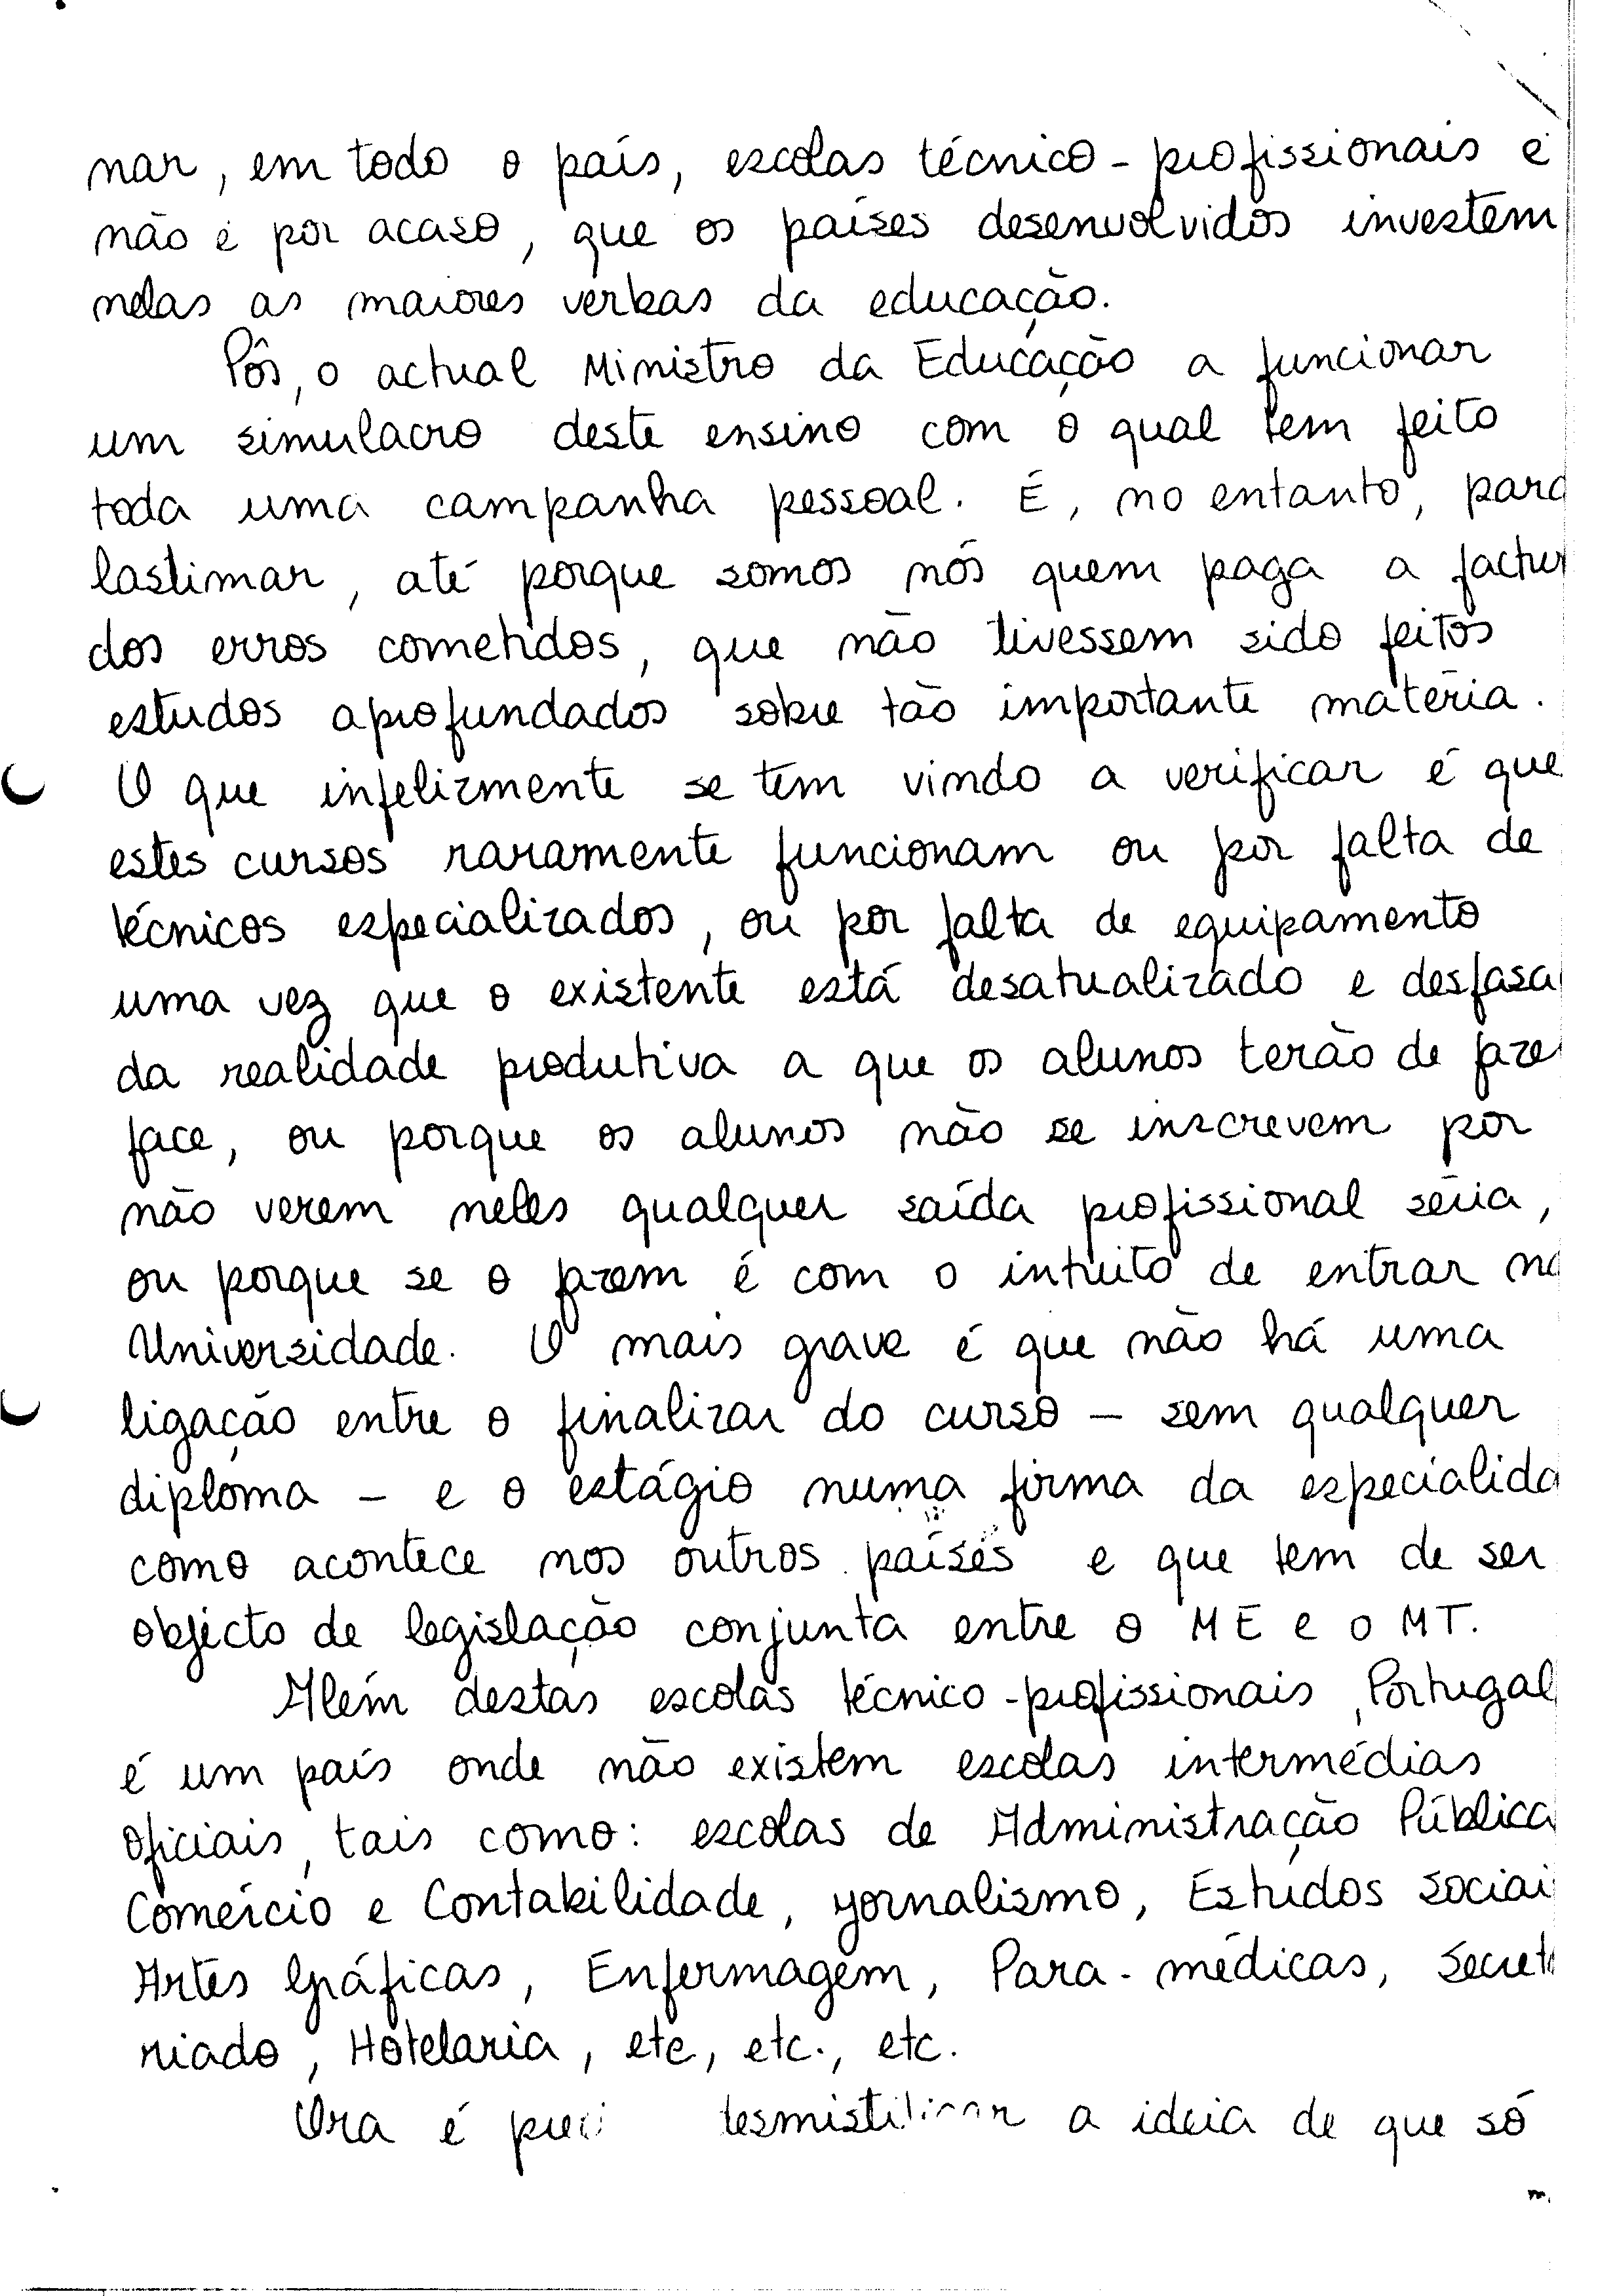 nar, em todo o país, escolas técnico-profissionais e
não é por acaso, que os países desenvolvidos investem
nelas as maiores verbas da educação.
Pôs, o actual Ministro da Educação a funcionar
um simulacro deste ensino com o qual tem feito
toda uma campanha pessoal. É, no entanto, para
lastimar, até porque somos nós quem paga a factur
dos erros cometidos, que não tivessem sido feitos
estudos aprofundados sobre tão importante matéria.
O que infelizmente se tem vindo a verificar é que
estes cursos raramente funcionam ou por falta de
técnicos especializados, ou por falta de equipamento
uma vez que o existente está desatualizado e desfasa
da realidade produtiva a que os alunos terão de faze
face, ou porque os alunos não se inscrevem por
não verem neles qualquer saída profissional séria,
ou porque se o fazem é com o intuito de entrar na
Universidade. O mais grave é que não há uma
ligação entre o finalizar do curso - sem qualquer
diploma - e o estágio numa firma da especialida
como acontece nos outros países e que tem de ser
objecto de legislação conjunta entre o ME e o MT.
Além destas escolas técnico-profissionais, Portugal
é um país onde não existem escolas intermédias
oficiais, tais como: escolas de Administração Pública
Comércio e Contabilidade, Jornalismo, Estudos Sociai
Artes Gráficas, Enfermagem, Para-médicas, Secreta
riado, Hotelaria, etc, etc., etc.
Ora é a ideia de que só